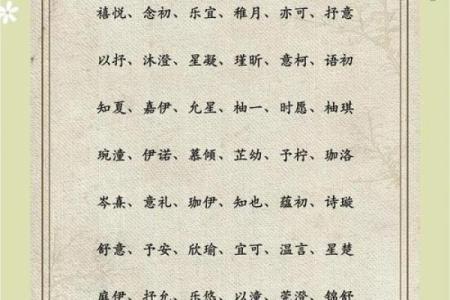 禧悦、念初、乐宜、稚月、亦可、抒意
以抒、沐澄、星凝、瑾昕、意柯、语初
知夏、嘉伊、允星、柚一、时愿、柚琪
琬潼、伊诺、慕倾、芷幼、予柠、珈洛
岑熹、意礼、珈伊、知也、蕴初、诗璇
舒意、予安、欣瑜、宜可、温言、星楚
庭伊、抒允、乐悠、以潼、莞澄、锦舒